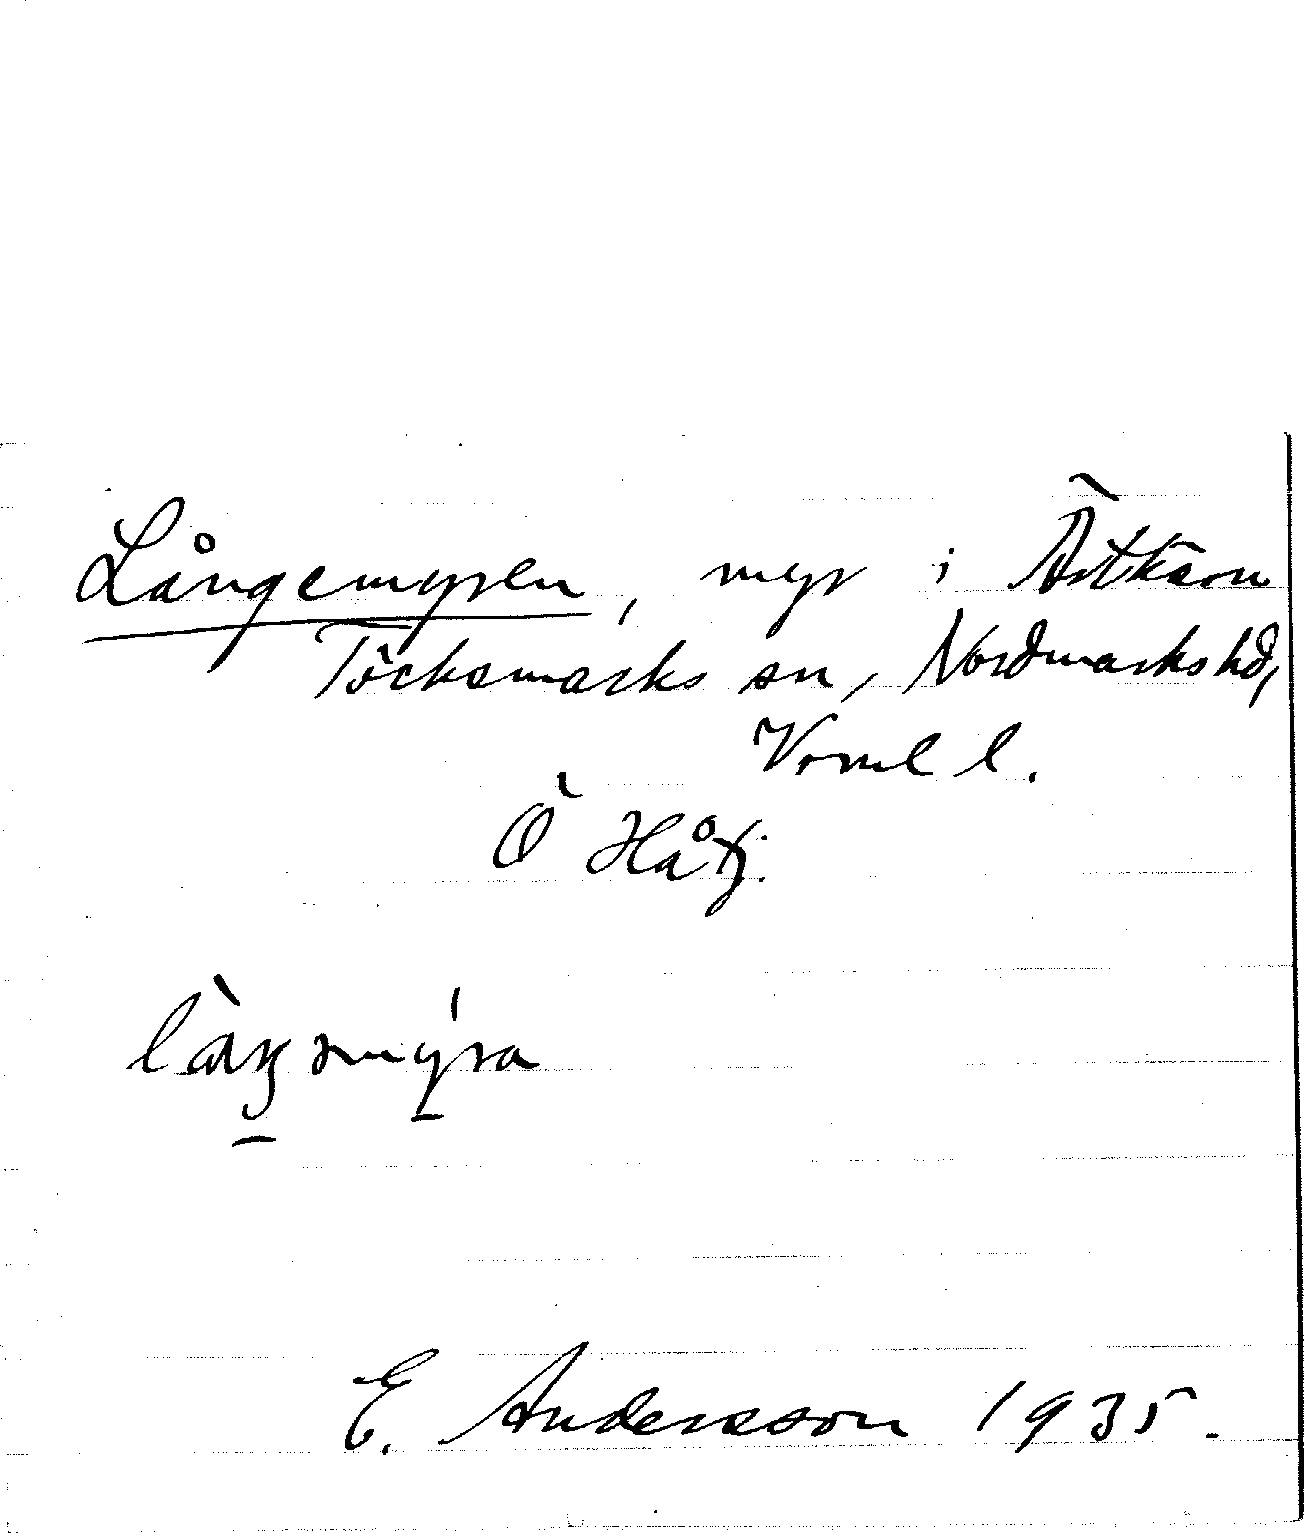 Långemyren, myr i Ärtkärn
Töcksmarks sn, Nordmarks hd,
Vrml l.
Ö
E. Andersson 1935.